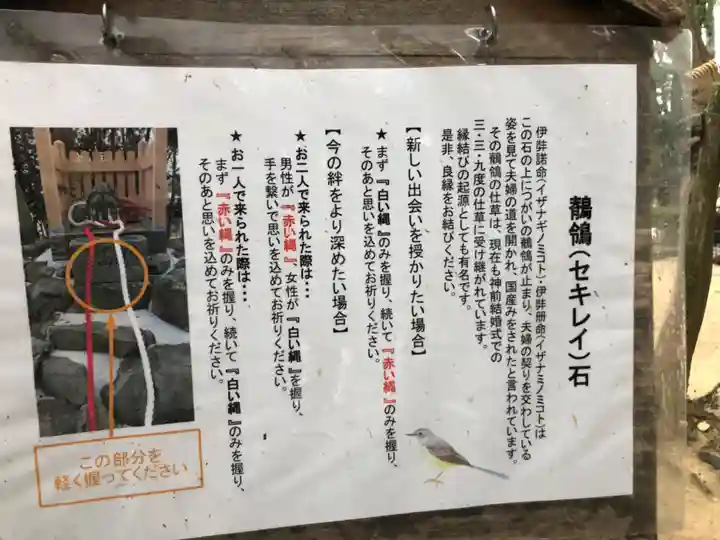 鶺鴒(セキレイ)石
伊弉諾命(イザナギノミコト)・伊弉冊命(イザナミノミコト)は
この石の上につがいの鶺鴒が止まり、夫婦の契りを交わしている
姿を見て夫婦の道を開かれ、国産みをされたと言われています。
その鶺鴒の仕草は、現在も神前結婚式での
三・三・九度の仕草に受け継がれています。
縁結びの起源としても有名です。
是非、良縁をお結びください。
【新しい出会いを授かりたい場合】
★まず『白い縄』のみを握り、続いて『赤い縄』のみを握り、
そのあと思いを込めてお祈りください。
【今の絆をより深めたい場合】
★お二人で来られた際は・・・
男性が、『赤い縄』、女性が『白い縄』を握り、
手を繋いで思いを込めてお祈りください。
★お一人で来られた際は・・・
まず『赤い縄』のみを握り、続いて『白い縄』のみを握り、
そのあと思いを込めてお祈りください。
この部分を
軽く握ってください